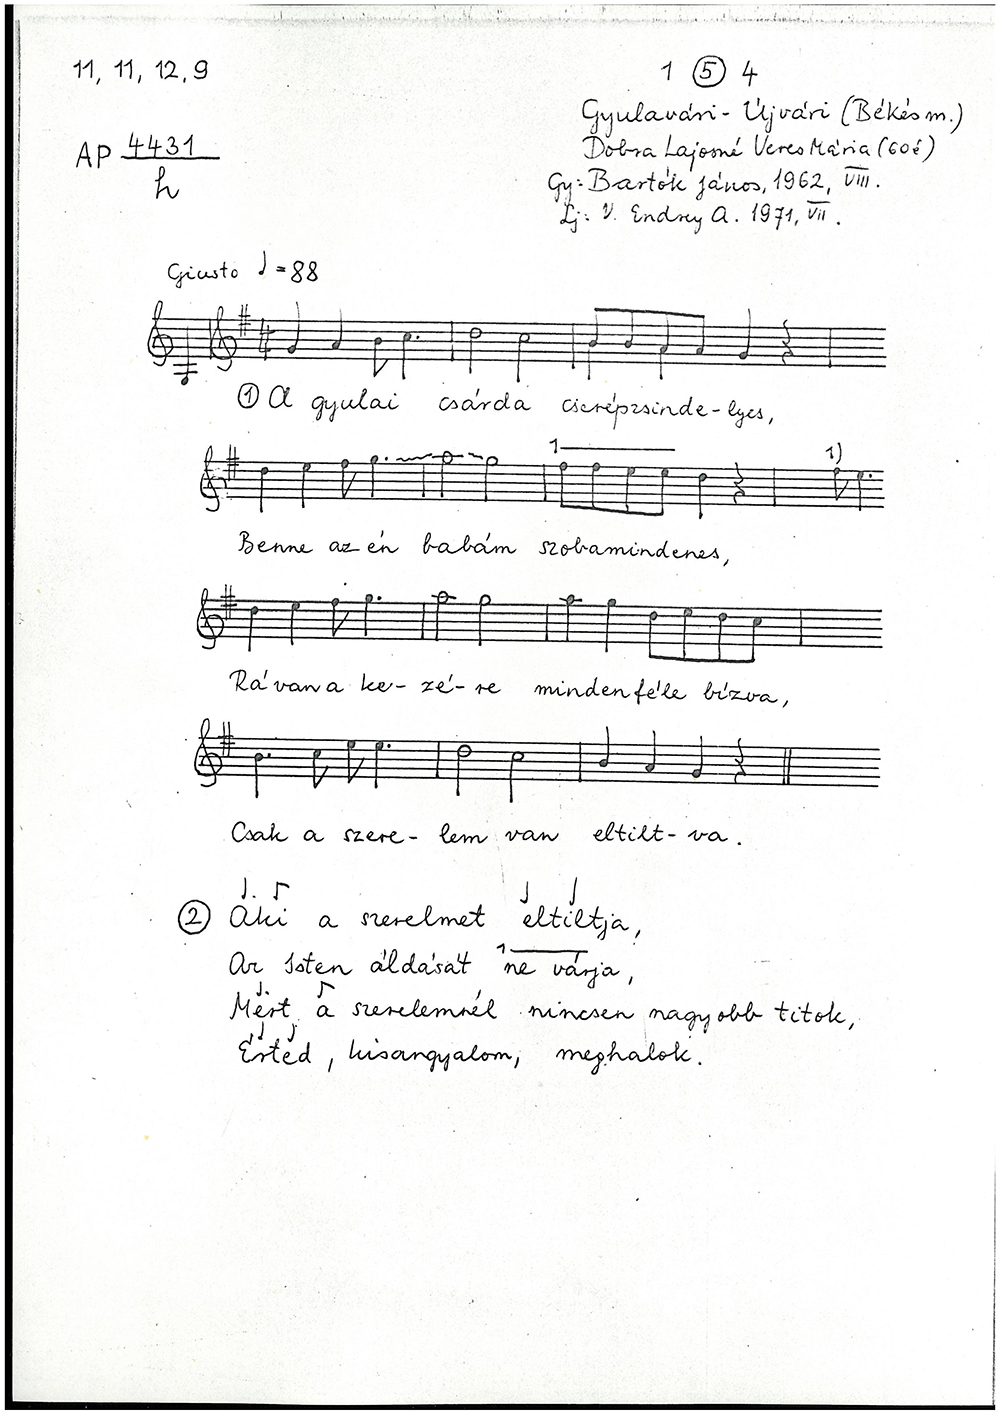 11, 11, 12, 9
1 ⑤ 4
Gyulavári - Újvári (Békés m.)
Dobra Lajosné Veres Mária (60 é)
AP 4431
h
Gy: Bartók János, 1962, VIII.
Lj: V. Endrey A. 1971, VII.
Giusto ♩ = 88
① A gyulai csárda cserépzsinde-lyes,
1
1)
Benne az én babám szobamindenes,
Rá van a ke-zé-re mindenféle bízva,
Csak a szere-lem van eltilt-va.
② Aki a szerelmet eltiltja,
Az Isten áldását 1 ne várja,
Mert a szerelemnél nincsen nagyobb titok,
Érted, kisangyalom, meghalok.